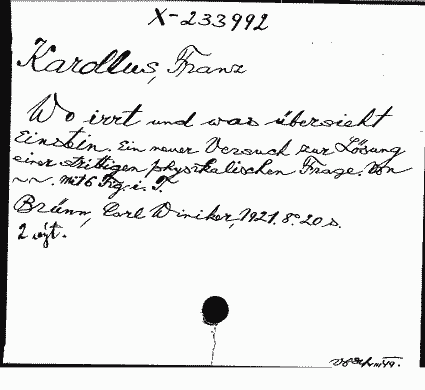 X-233992
Kardllus, Franz
Wo irrt und was übersieht
Einstein. Ein neuer Versuch zur Lösung
einer strittigen physikalischen Frage. Von
~~. Mit 6 Fig. i. T.
Brünn, Carl Winiker, 1921. 8° 20 s.
2